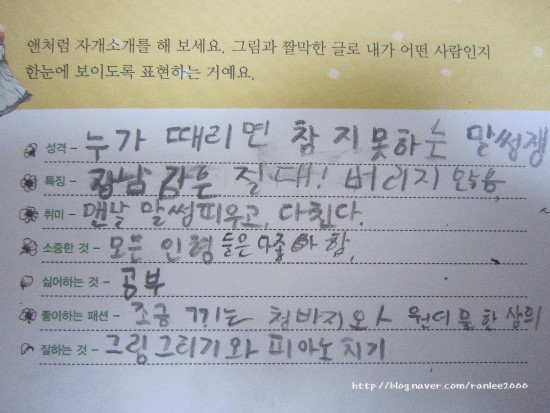 앤처럼 자개소개를 해 보세요. 그림과 짤막한 글로 내가 어떤 사람인지
한눈에 보이도록 표현하는 거예요.
성격 - 누가 때리면 참지못하는 말썽쟁
특징 - 장난감은 절대! 버리지 않음
취미 - 맨날 말썽피우고, 다친다.
소중한 것 - 모든 인형들은 다좋아함.
싫어하는 것 - 공부
좋아하는 패션 - 조금 끼는 청바지와 원더풀한 상의
잘하는 것 - 그림그리기와 피아노치기
http://blog.naver.com/ranlee2000